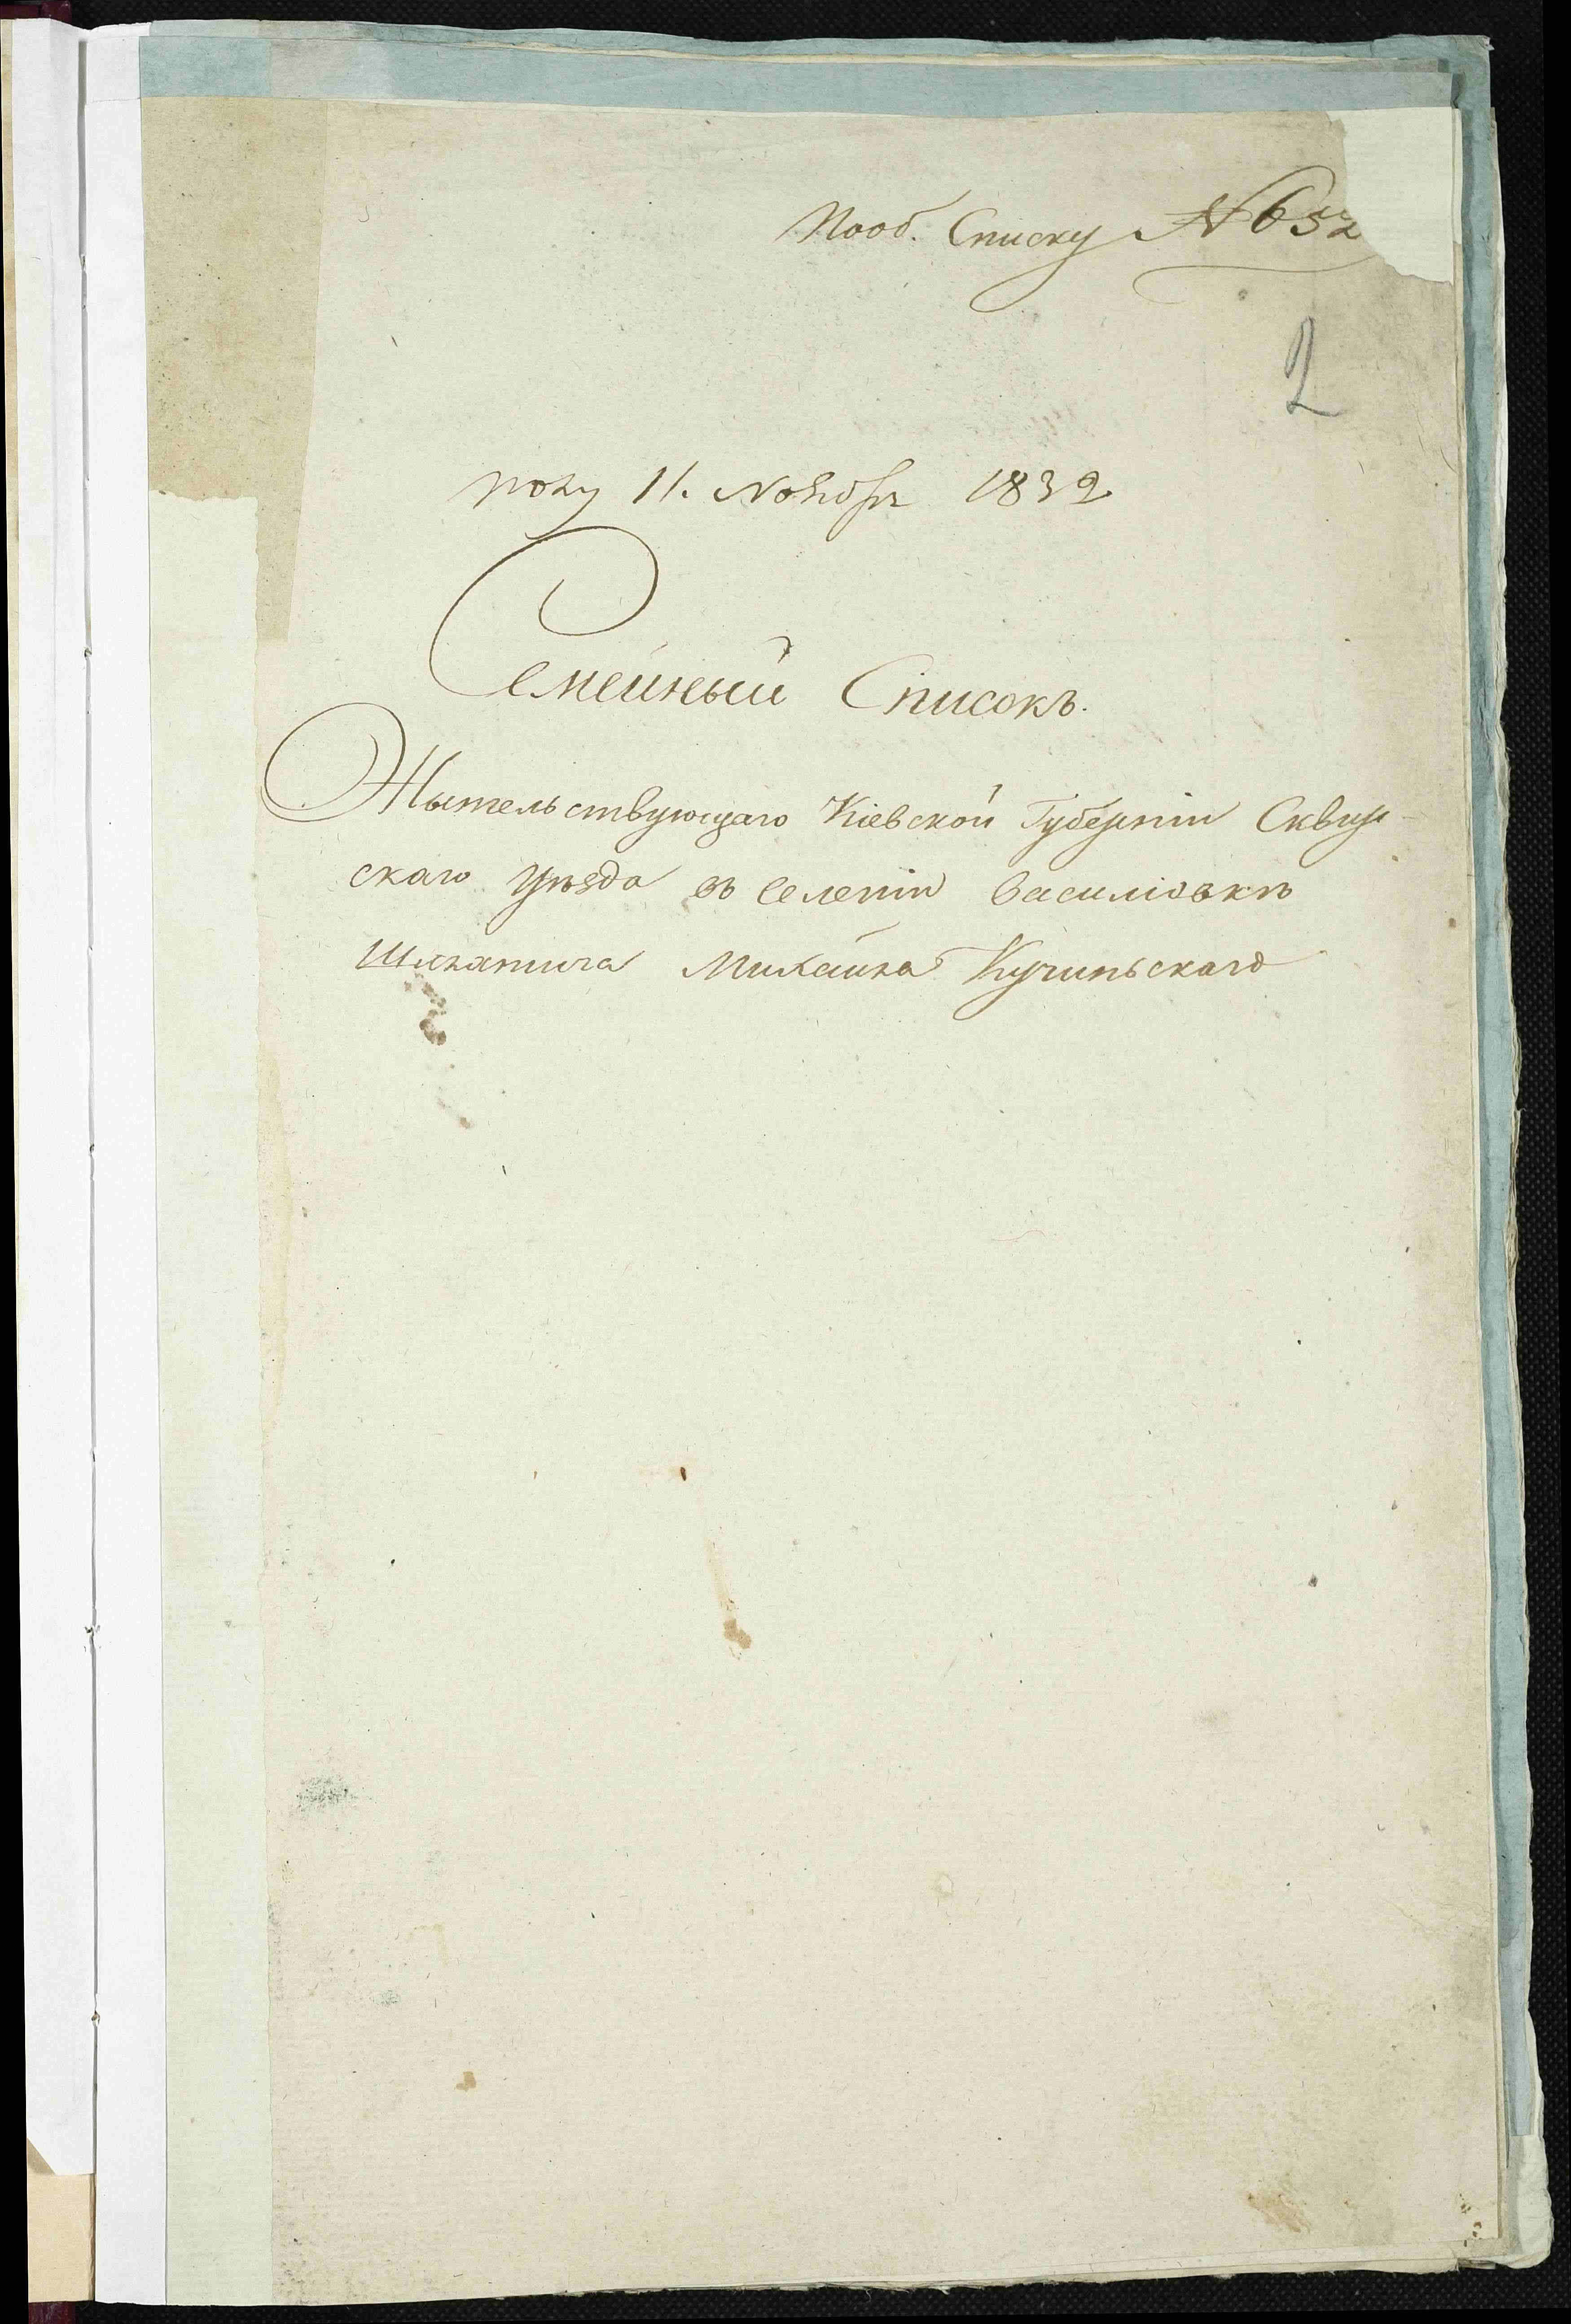 Пооб. Списку № 652
2
року 11. Ноября 1832
Семейный Списокъ.
Жытельствующаго Кіевской Губерніи Сквир-
скаго Уѣзда въ Селеніи Василіовкѣ
Шляхтича Михайла Кучиньскаго